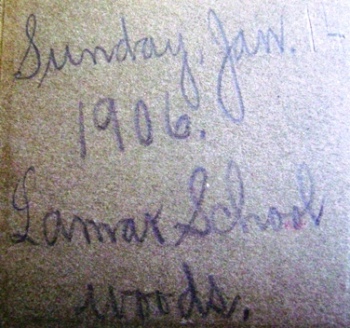 Sunday, Jan. 1-
1906.
Lamar School
woods.